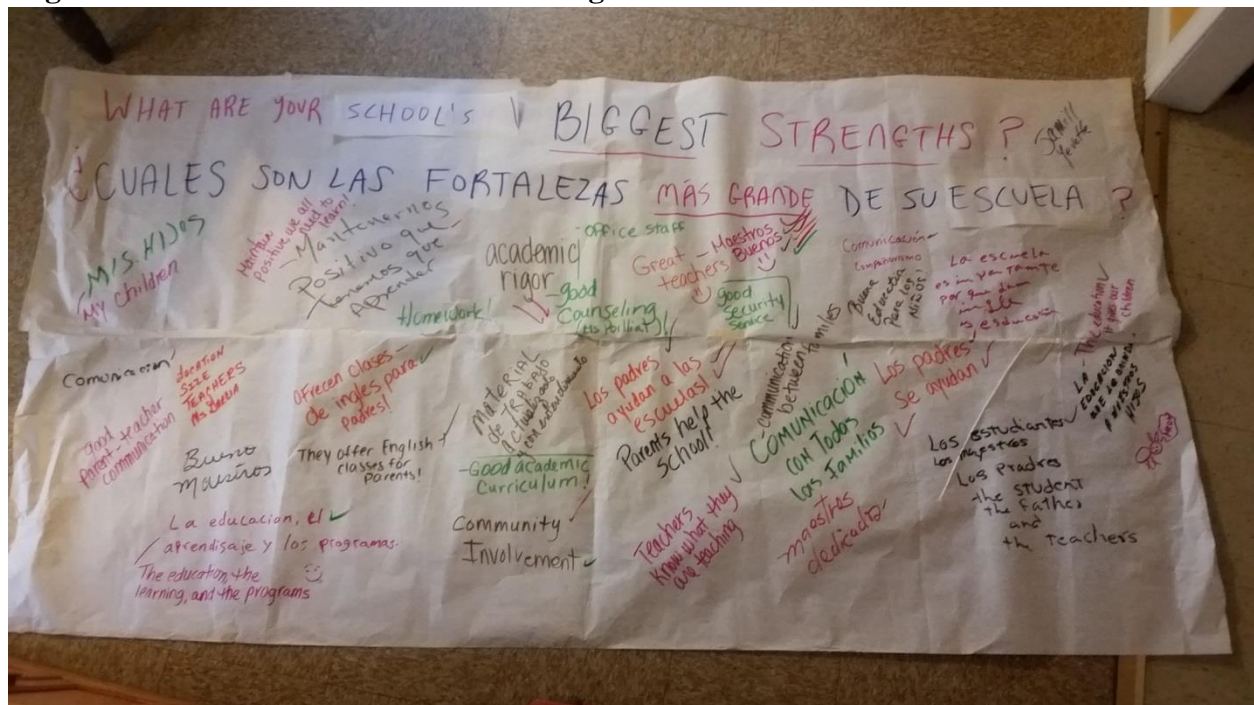 WHAT ARE YOUR SCHOOL'S BIGGEST STRENGTHS ?
¿CUALES SON LAS FORTALEZAS MÁS GRANDE DE SU ESCUELA ?
Yevette
MIS HIJOS
My Children
Maintain
Positive we all
need to
learn!
- Mantenernos
Positivo que
tenemos que
Aprender
Homework!
academic
rigor
- Office staff
- good
Counseling
Great
teachers
- Maestros
Buenos
good
Security
Service
Comunicación
Compañerismo
Buena
Educación
Para los
niños!
La escuela
es
por que
educación
The education
our
children
Comunicacion
good
Parent-teacher
communication
LOCATION
SIZE
TEACHERS
Bueno
Maestros
Ofrecen Clases
de ingles para
Padres!
They offer English
classes for
Parents!
MATERIAL
de TRABAJO
actualizado
y con
- Good academic
Curriculum!
Community
Involvement
Los padres
ayudan a las
escuelas!
Parents help the
School!
- Communication
between families
COMUNICACION
CON TODOS
las Familios
Los padres
se ayudan
Los estudiantes
Los maestros
Los pradres
the student
the father
and
the teachers
LA
EDUCACION
QUE LE
La educacion, el
aprendisaje y los programas.
The education, the
learning, and the programs
Teachers
know what they
are teaching
maostros
dedicado